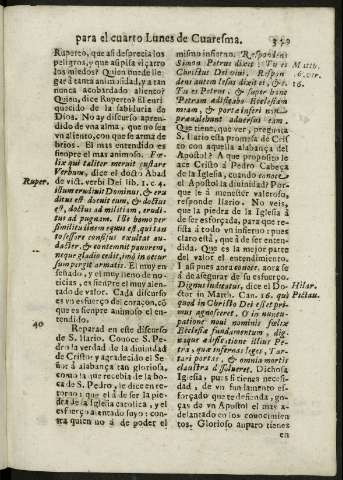 para el cuarto Lunes de Cuaresma.
Ruperto, que asi desprecia los
peligros, y que asi pisa el carro
los miedos? Quien puede lle-
gar à tanta animosidad, y a tan
nunca acobardado aliento?
Quien, dice Ruperto? El enri-
quecido de la sabiduria de
Dios. No ay discurso apren-
dido de vna alma, que no sea
vn aliento, con que se arma de
brios. El mas entendido es
siempre el mas animoso. Fœ-
lix qui taliter meruit gustare
Verbum, dice el docto Abad
Ruper.
de vict. verbi Dei lib. 1. c. 4.
istum erudiuit Dominus, & eru
ditus est doceri tum, & doctus
est, doctus ad militiam, erudi-
tus ad pugnam. Vt homo per
similitudinem equus est, qui tan
to sessore consisus exultat au-
dacter, & contemnit pauorem,
neque gladio cedit, imò in occur
sum pergit armatis. El muy en-
señado, y el muy lleno de no-
ticias, es siempre el muy alen-
tado de valor. Cada discurso
es vn esfuerço del coraçon, cō
que es siempre animoso el en-
tendido.
40
Reparad en este discurso
de S. Ilario. Conoce S. Pe-
dro la verdad de la diuinidad
de Cristo; y agradecido el Se-
ñor à alabança tan gloriosa,
como la que recebia de la bo-
ca de S. Pedro, le dice en re-
torno: que el à de ser la pie-
dra de la Iglesia catolica, y el
esfuerço alentado suyo: con-
tra quien no à de poder el
mismo infierno. Respondens
Simon Petrus dixit: Tu es
Christus Dei viui. Respon
dens autem Iesus dixit ei, &c.
Tu es Petrus, & super hanc
Petram ædificabo Ecclesiam
meam, & portæ inferi non
præualebunt aduersus eam.
Matth.
6. ver.
16.
Que tiene, que ver, pregunta
S. Ilario esta promesa de Cris
to con aquella alabança del
Apostol? A que proposito le
ace Cristo à Pedro Cabeça
de la Iglesia, cuando conoce
el Apostol la diuinidad? Por-
que le à menester valeroso,
responde Ilario. No veis,
que la piedra de la Iglesia à
de ser esforçada, para que re-
sista à todo vn infierno: pues
claro està, que à de ser enten-
dida. Que es la mejor parte
del valor el entendimiento.
I asi pues antes conoce, aora se
à de asegurar de su esfuerço.
Dignus iudicatur, dice el Do-
ctor in March. Can. 16. qui
quod in Christo Dei esset pri-
mus agnosceret. O in nuncu-
patione noui nominis fœlix
Ecclesiæ fundamentum, dig-
naque ædificatione illius Pe-
tra, quæ infernas leges, Tar-
tari portas, & omnia mortis
claustra dissolueret. Dichosa
Hilar.
Pictau.
Iglesia, pues si tienes necesi-
dad, de vn fundamento es-
forçado que te defienda, go-
ças de vn Apostol el mas a-
delantado en los conocimien-
tos. Glorioso amparo tienes
en